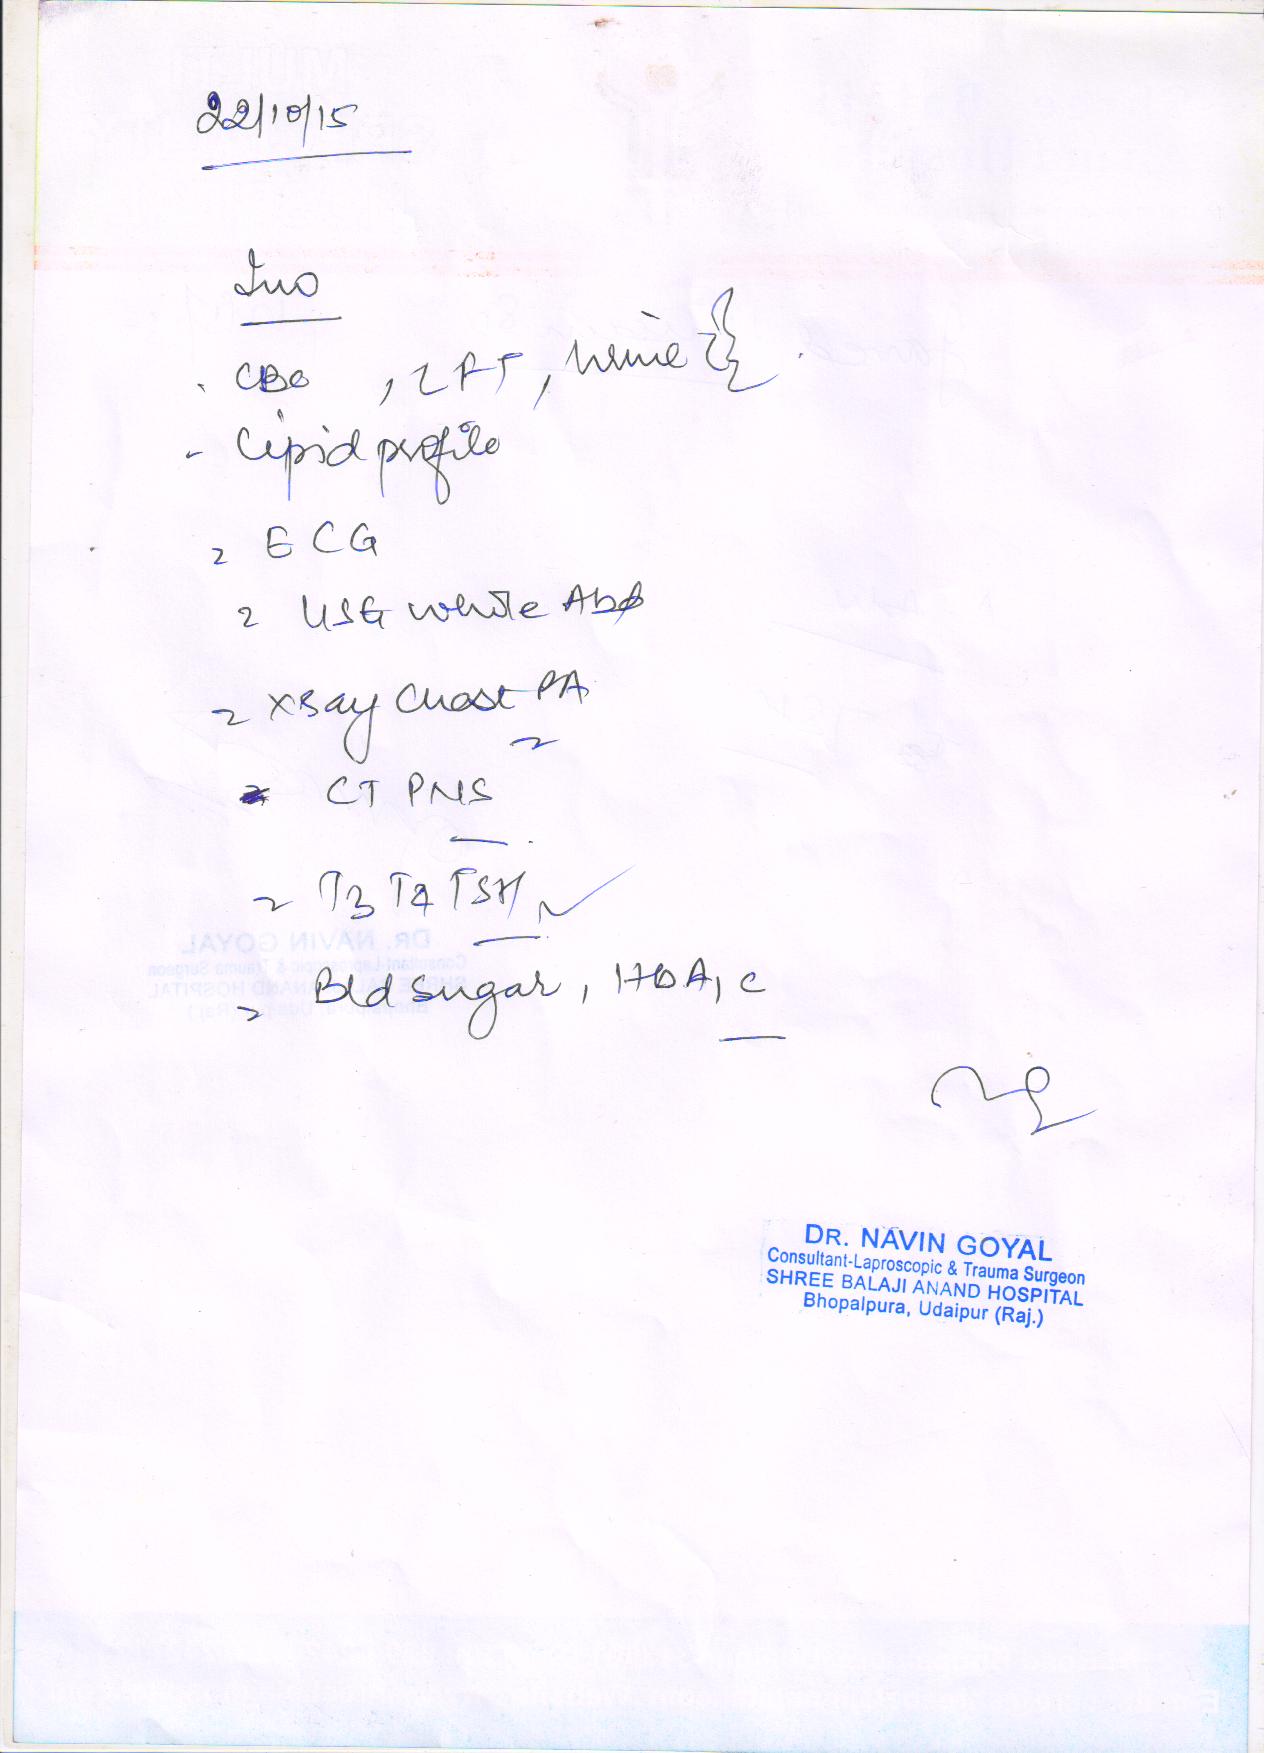 22/10/15
Inv
CBC, LFT, Urine
- Lipid profile
- ECG
- USG whole Abd
- X Ray Chest PA
CT PNS
- T3 T4 TSH
- Bld sugar, HbA1c
DR. NAVIN GOYAL
Consultant-Laproscopic & Trauma Surgeon
SHREE BALAJI ANAND HOSPITAL
Bhopalpura, Udaipur (Raj.)